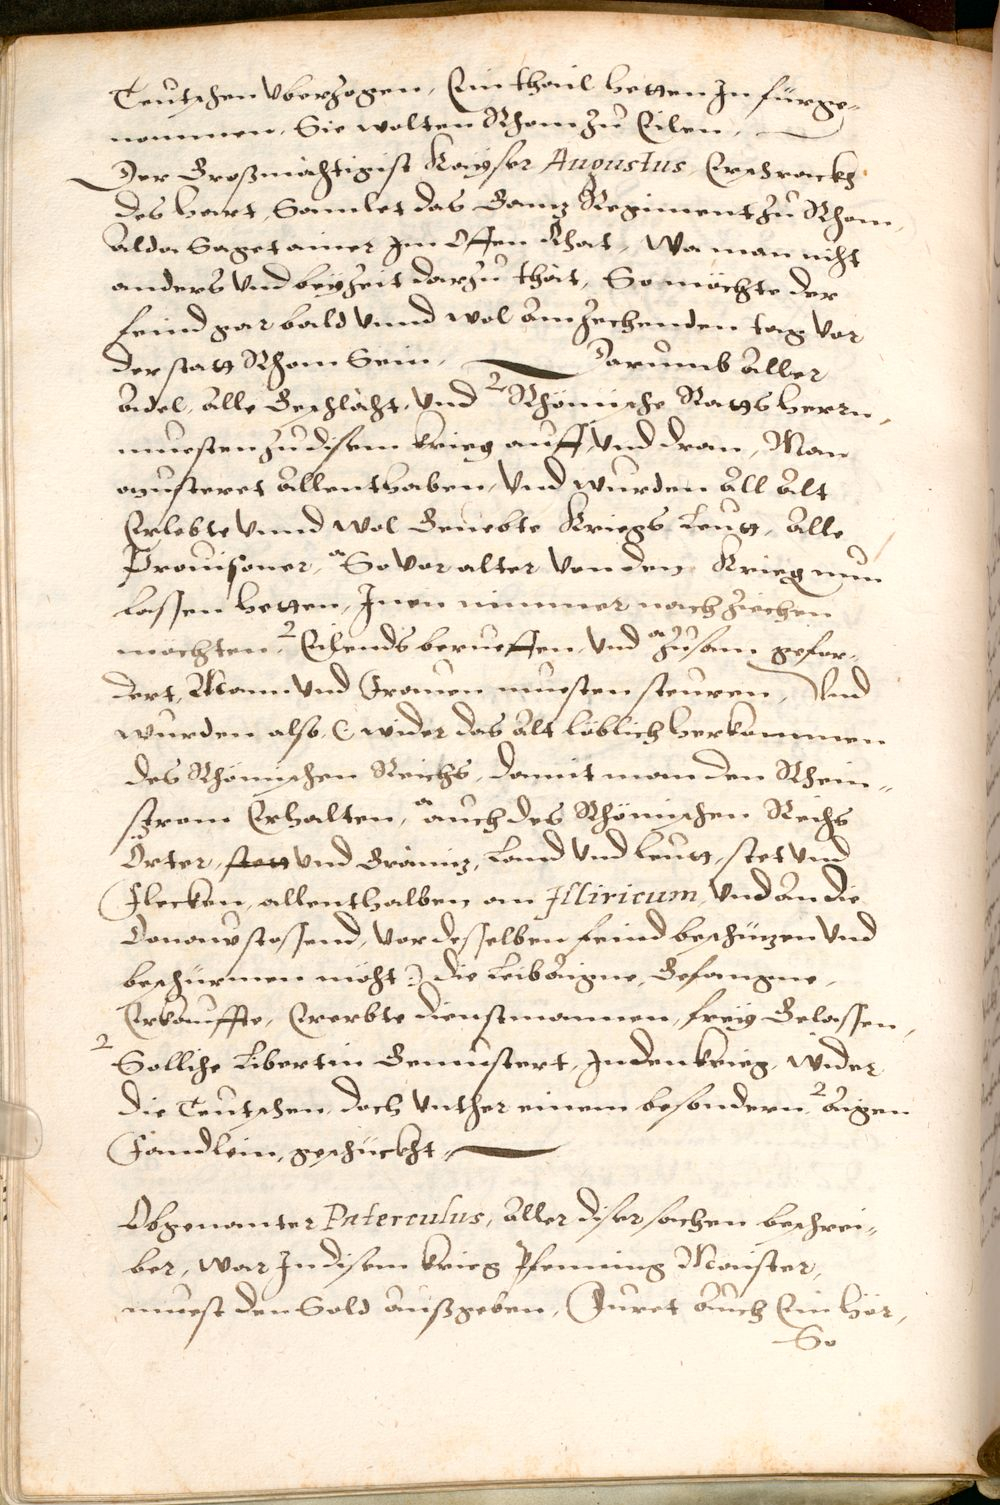 Teutschen Vberzogen, Ein thail hetten In fürge-
nommen, Sie wolten Rhom zu Eilen,
Der Großmächtigist Kayser Augustus, Erschrackh
des hart, Samlet das Gantz Regiment zu Rhom,
alda Saget ainer Im Offen Rhat, Wa man nicht
anders Vnd beyzeit darzu thät, So möchte der
feind gar bald Vnnd wol Am zechenden tag Vor
der statt Rhom Sein, Darumb Aller
Adel, Alle Geschlächt, Vnd 2 Rhömische Rattsherrn,
muesten zu disem krieg auff, Vnd dran, Man
musteret Allenthaben, Vnd wurden All Alt
Erlebte Vnnd Wol Geuebte Kriegs Leutt, Alle
Prouisoner, a So Vor alter Von den Krieg nun
lassen hetten, Inen nimmer nach ziechen
möchten, 2 Eilends berueffen, Vnd a zusam gefor-
dert, Mann Vnd Frawen muesten steuren, Vnd
wurden also, ( wider das Alt löblich herkommen
des Rhömischen Reichs, damit man den Rhein-
strom Erhalten, a auch des Rhömischen Reichs
Örter, stett Vnd Gräintz, Land Vnd leutt, stet Vnd
Flecken, allenthalben an Illiricum, Vnd An die
Donaw stossend, Vor desselben feind beschützen Vnd
beschürmen möcht :) die Leib Aigne, Gefangne,
Erkauffte, Ererbte dienstmannen, freÿ Gelassen,
2 Solliche Libertin Gemustert, In den krieg, wider
die Teutschen, doch Vnther einem besondern 2 Aigen
Fändlein, geschückht.
Obgenanter Paterculus, Aller diser sachen beschrei-
ber, War In disem krieg Pfenning Maister,
muest den Sold Außgeben, Fuert Auch Ein Hör,
So